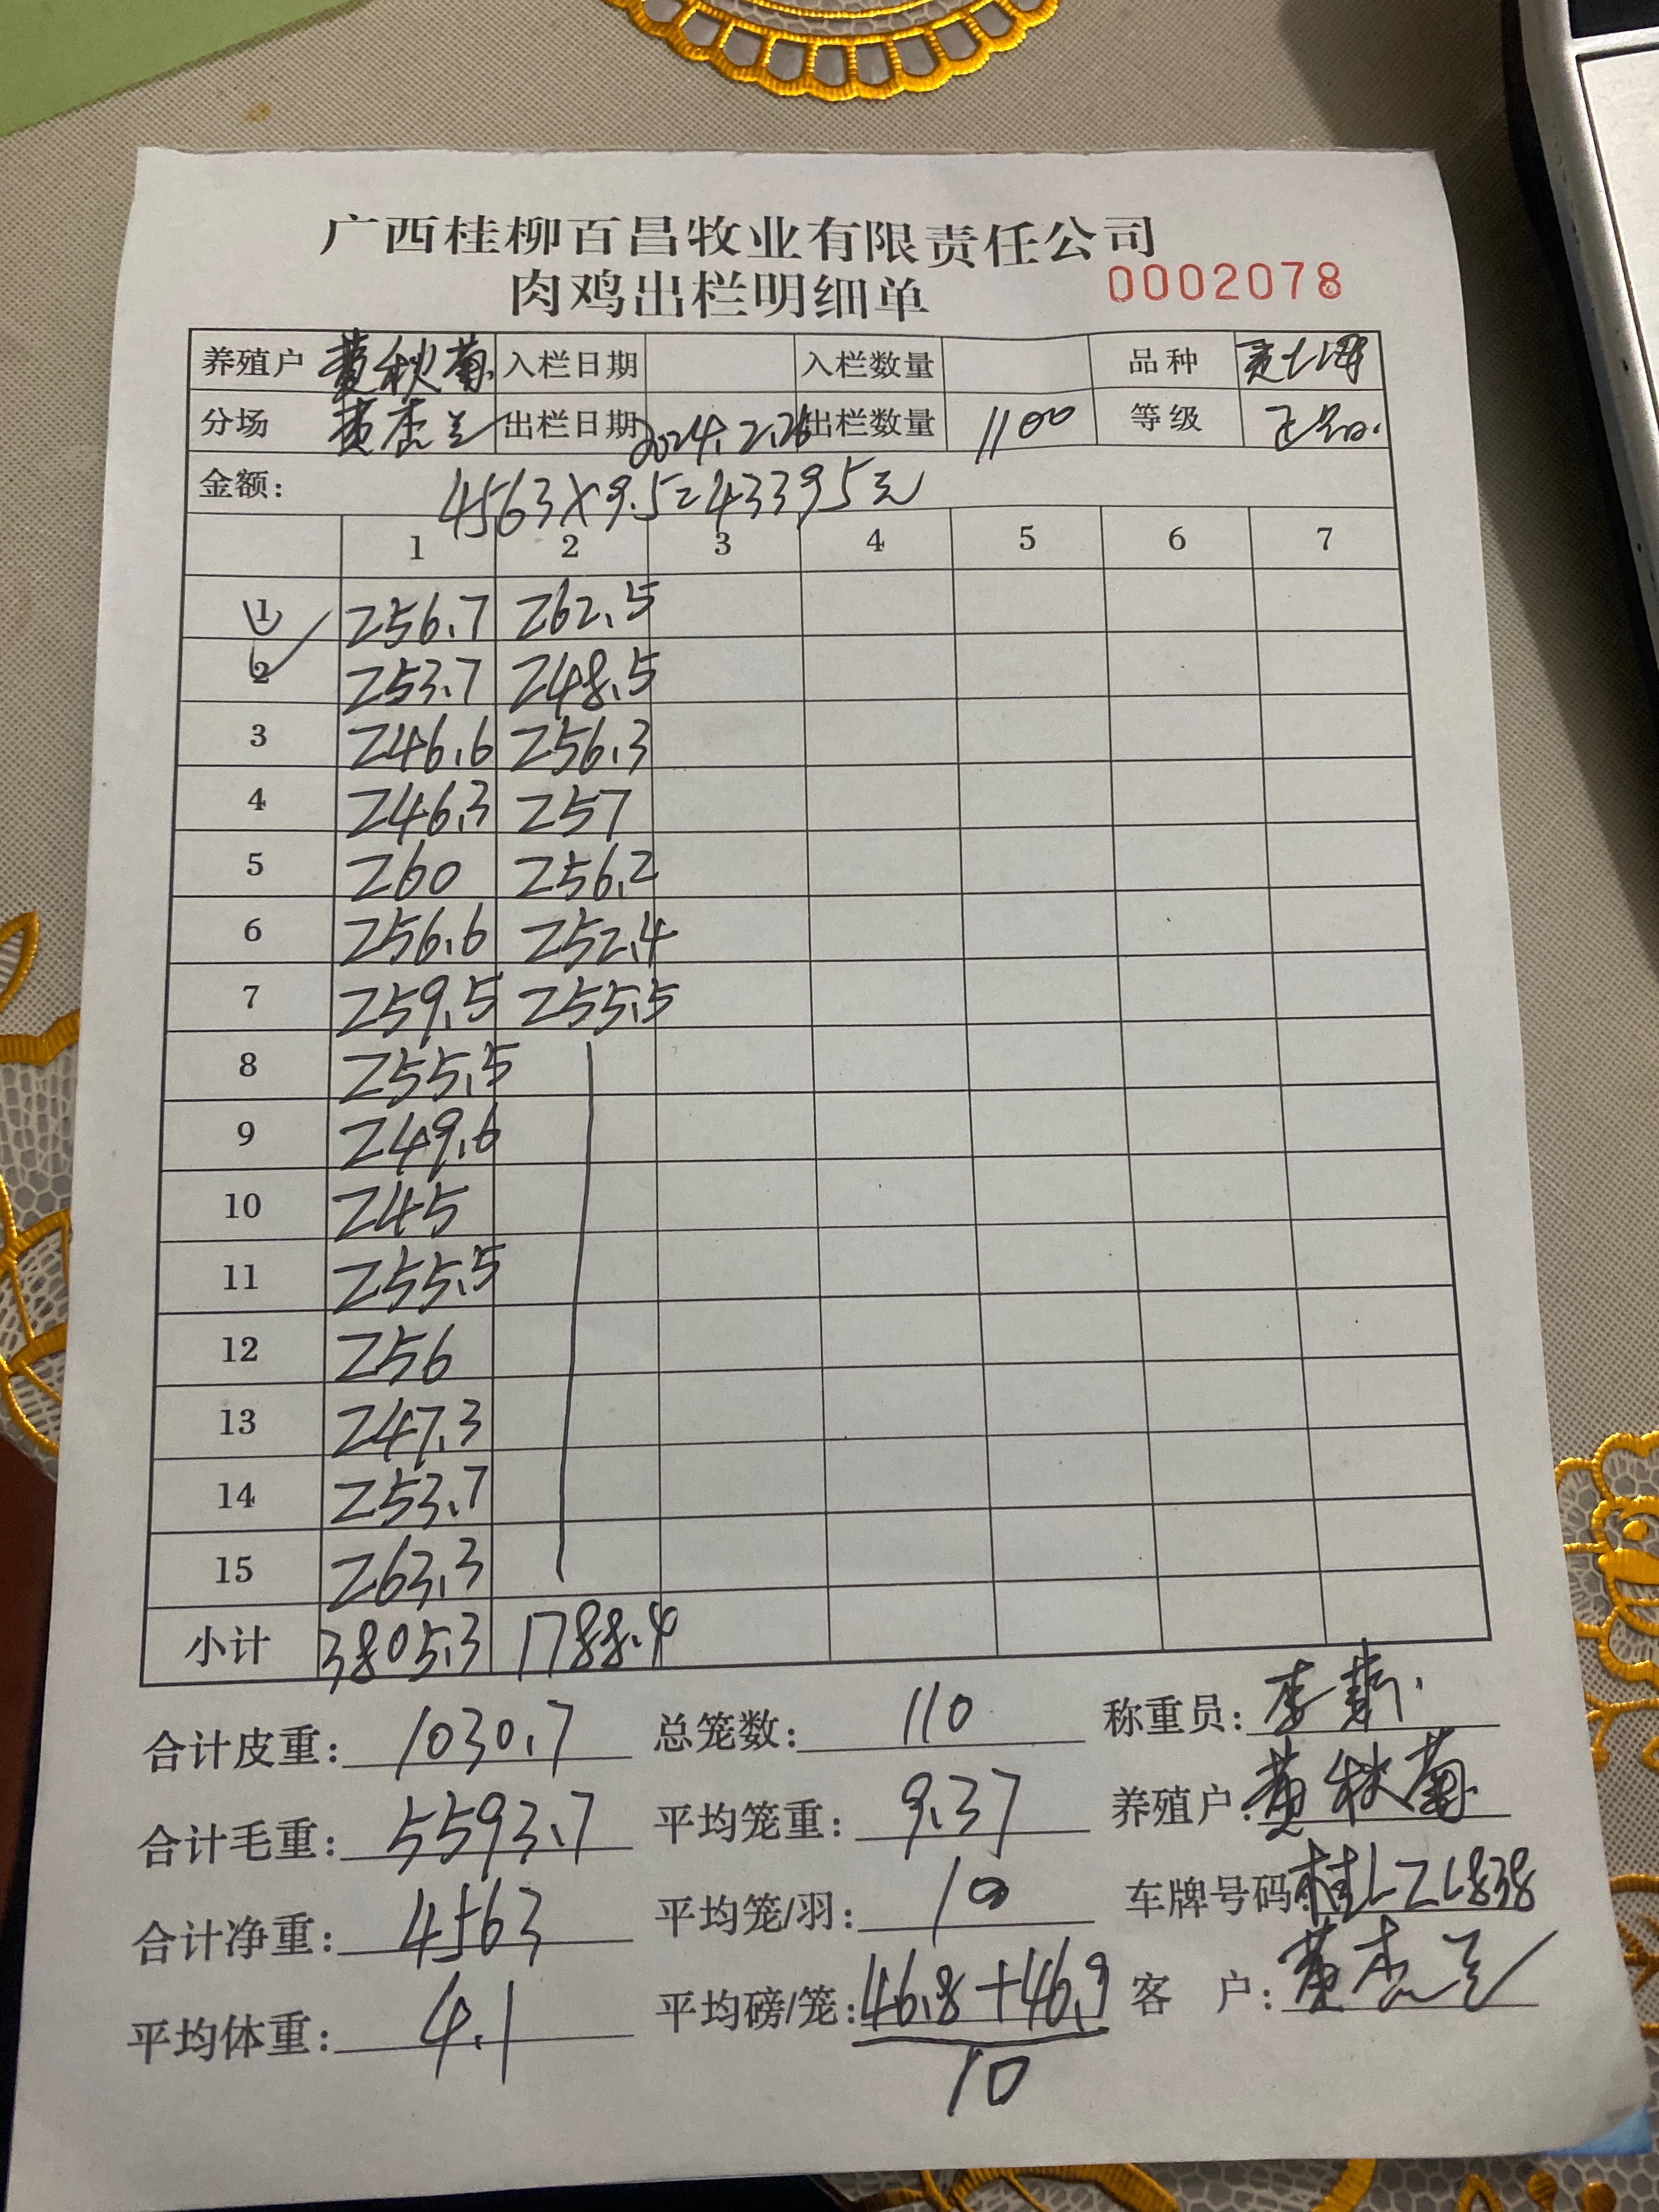 广西桂柳百昌牧业有限责任公司
肉鸡出栏明细单 0002078
养殖户 黄秋菊 入栏日期 入栏数量 品种
分场 黄杰兰 出栏日期 2024.2.26 出栏数量 1100 等级
金额: 4563×9.5=43395元
1 2 3 4 5 6 7
1 256.7 262.5
2 253.7 248.5
3 246.6 256.3
4 246.3 257
5 260 256.2
6 256.6 252.4
7 259.5 255.5
8 255.5
9 249.6
10 245
11 255.5
12 256
13 247.3
14 253.7
15 263.3
小计 3805.3 1788.4
合计皮重: 1030.7 总笼数: 110 称重员: 李
合计毛重: 5593.7 平均笼重: 9.37 养殖户: 黄秋菊
合计净重: 4563 平均笼/羽: 10 车牌号码: 桂LZL838
平均体重: 4.1 平均磅/笼: 46.8+46.9 客 户: 黄杰兰
10